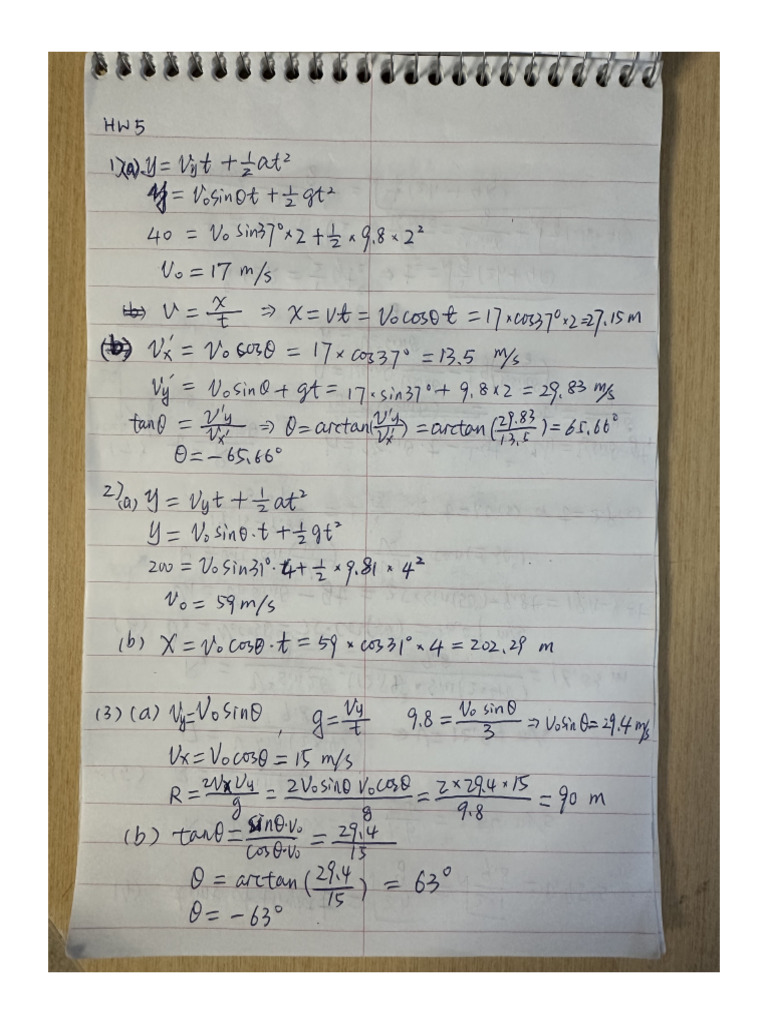 HW5
1)(a). y = Vyt + 1/2 at²
y = V₀sinθt + 1/2 gt²
40 = V₀ sin37° × 2 + 1/2 × 9.8 × 2²
V₀ = 17 m/s
(b) V = x/t ⇒ x = Vt = V₀cosθt = 17 × cos37° × 2 = 27.15 m
(b) Vx' = V₀ cosθ = 17 × cos37° = 13.5 m/s
Vy' = V₀sinθ + gt = 17 · sin37° + 9.8 × 2 = 29.83 m/s
tanθ = V'y/Vx' ⇒ θ = arctan(V'y/Vx') = arctan(29.83/13.5) = 65.66°
θ = -65.66°
2)(a) y = Vyt + 1/2 at²
y = V₀ sinθ · t + 1/2 gt²
200 = V₀ sin31° · 4 + 1/2 × 9.81 × 4²
V₀ = 59 m/s
(b) X = V₀ cosθ · t = 59 × cos31° × 4 = 202.29 m
(3) (a) Vy = V₀sinθ , g = Vy/t 9.8 = V₀ sinθ/3 ⇒ V₀sinθ = 29.4 m/s
Vx = V₀cosθ = 15 m/s
R = 2VxVy/g = 2V₀sinθ V₀cosθ/g = 2 × 29.4 × 15/9.8 = 90 m
(b) tanθ = sinθ·V₀/cosθ·V₀ = 29.4/15
θ = arctan (29.4/15) = 63°
θ = -63°